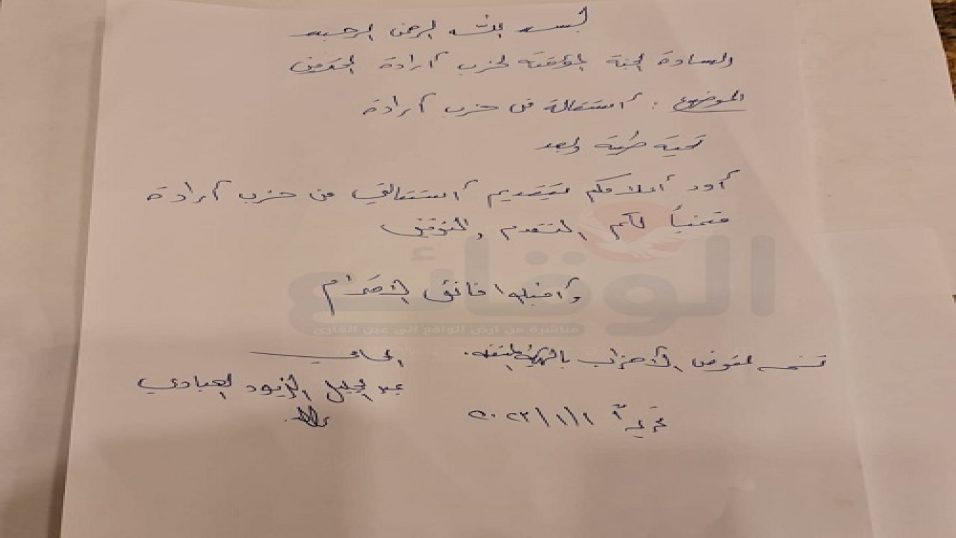 بسم الله الرحمن الرحيم
السادة اللجنة المؤقتة لحزب إرادة المحترمين
الموضوع: استقالة من حزب إرادة
تحية طيبة وبعد
أود إعلامكم بتقديم استقالتي من حزب إرادة
متمنياً لكم التقدم والتوفيق
واقبلوا فائق الاحترام
المحامي
نسخة لمفوض الأحزاب بالهيئة المستقلة.
عبد الجليل الزيود العبادي
تحريراً
الوقائع
مباشرة من ارض الواقع الى عين القارئ